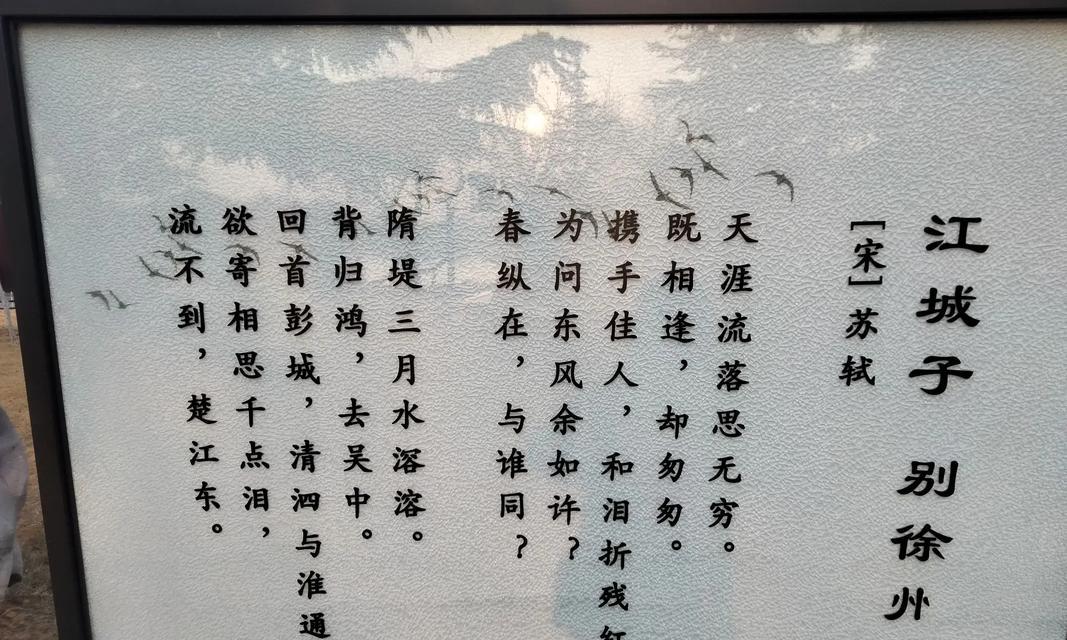 江城子 别徐州
[宋]苏轼
天涯流落思无穷。
既相逢，却匆匆。
携手佳人，和泪折残红
为问东风余如许？
春纵在，与谁同？
隋堤三月水溶溶。
背归鸿，去吴中。
回首彭城，清泗与淮通
欲寄相思千点泪，
流不到，楚江东。